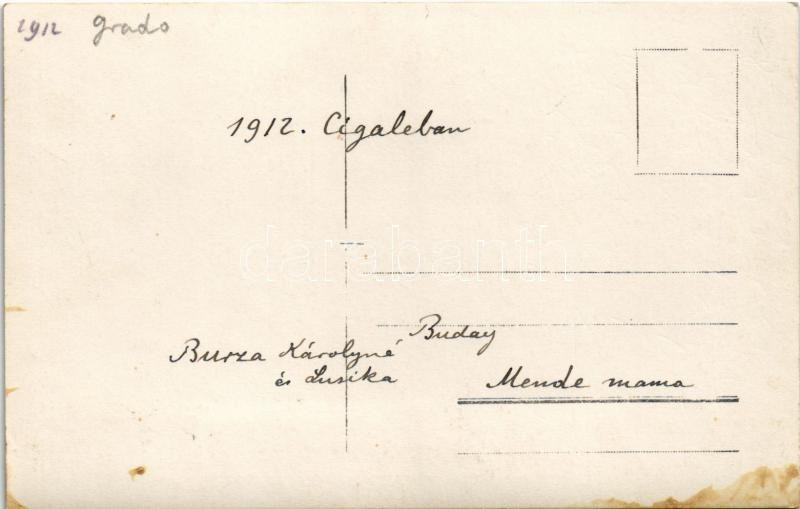 1912 Grado
1912. Cigaleban
darabanth
Buday
Burza Károlyné
és Lusika
Mende mama